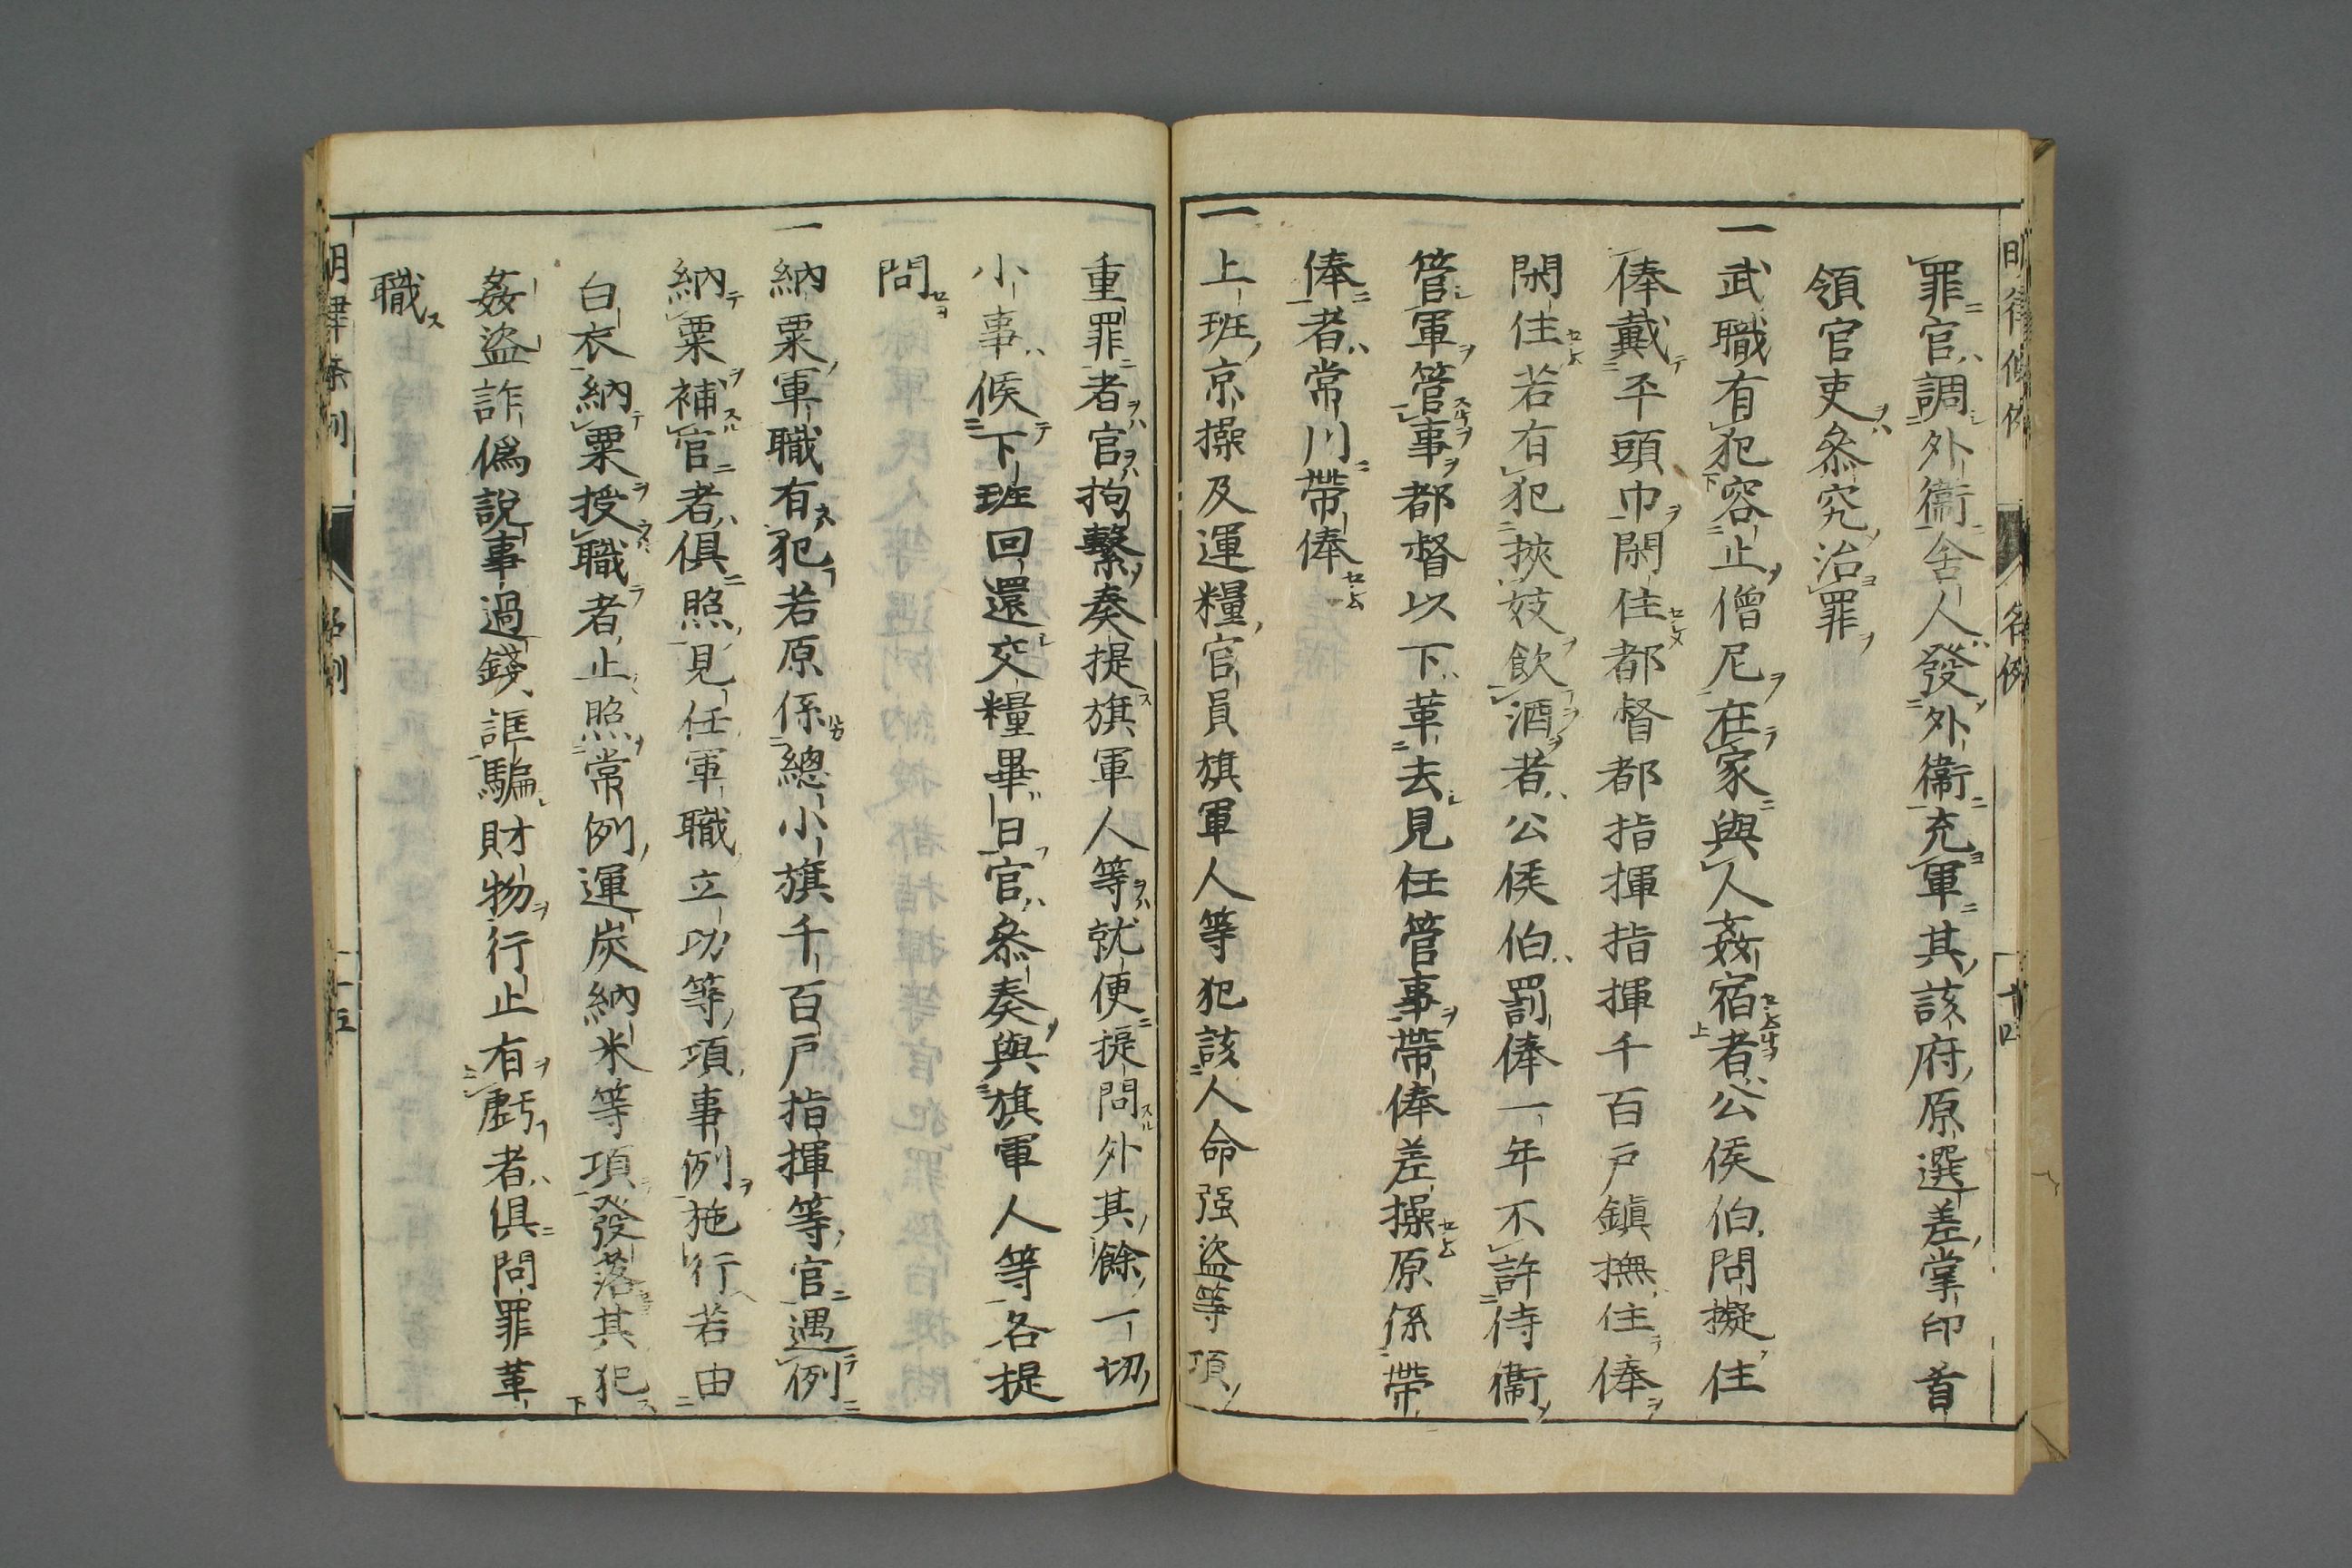 罪官調外衞舍人發外衞充軍其該府原選差掌印首
領官吏叅究治罪
一武職有犯容止僧尼在家與人姦宿者公侯伯問擬住
俸戴平頭巾閑住都督都指揮指揮千百戸鎭撫住俸
閑住若有犯挾妓飮酒者公侯伯罰俸一年不許侍衞
管軍管事都督以下革去見任管事帶俸差操原係帶
俸者常川帶俸
一上班京操及運糧官員旗軍人等犯該人命强盗等項
重罪者官拘繫奏提旗軍人等就便提問外其餘一切
小事候下班回還交糧畢日官叅奏與旗軍人等各提
問
一納粟軍職有犯若原係總小旗千百戸指揮等官遇例
納粟補官者俱照見任軍職立功等項事例施行若由
白衣納粟授職者止照常例運炭納米等項發落其犯
姦盗詐僞說事過錢誆騙財物行止有虧者俱問罪革
職